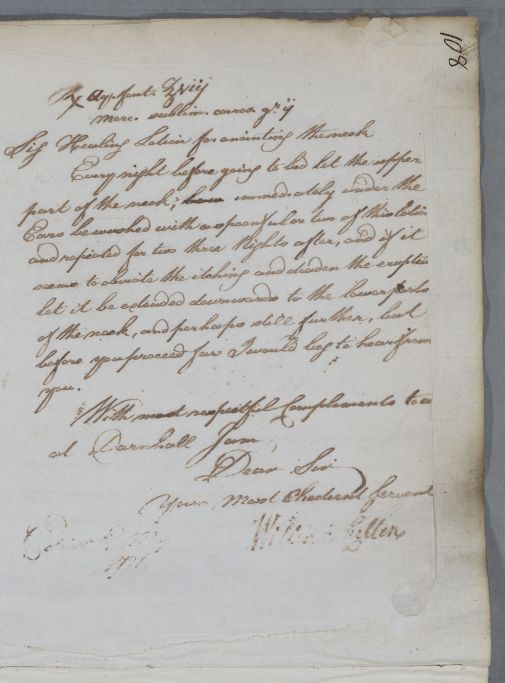 108
℞ Aq. font. ℥viij
Merc. sublim. corros. gr. ij
Sig Healing Lotion for anointing the neck
Every night before going to bed let the upper
part of the neck, immediately under the
Ears be washed with a spoonful or two of this lotion
and repeated for two three Nights after, and if it
seems to obviate the itching and deaden the eruption
let it be extended downwards to the lower parts
of the neck, and perhaps still further, but
before you proceed far I would beg to hear from
you.
With most respectful Compliments to
at Darnhall I am
Dear Sir
Your Most Obedient Servant
William Cullen